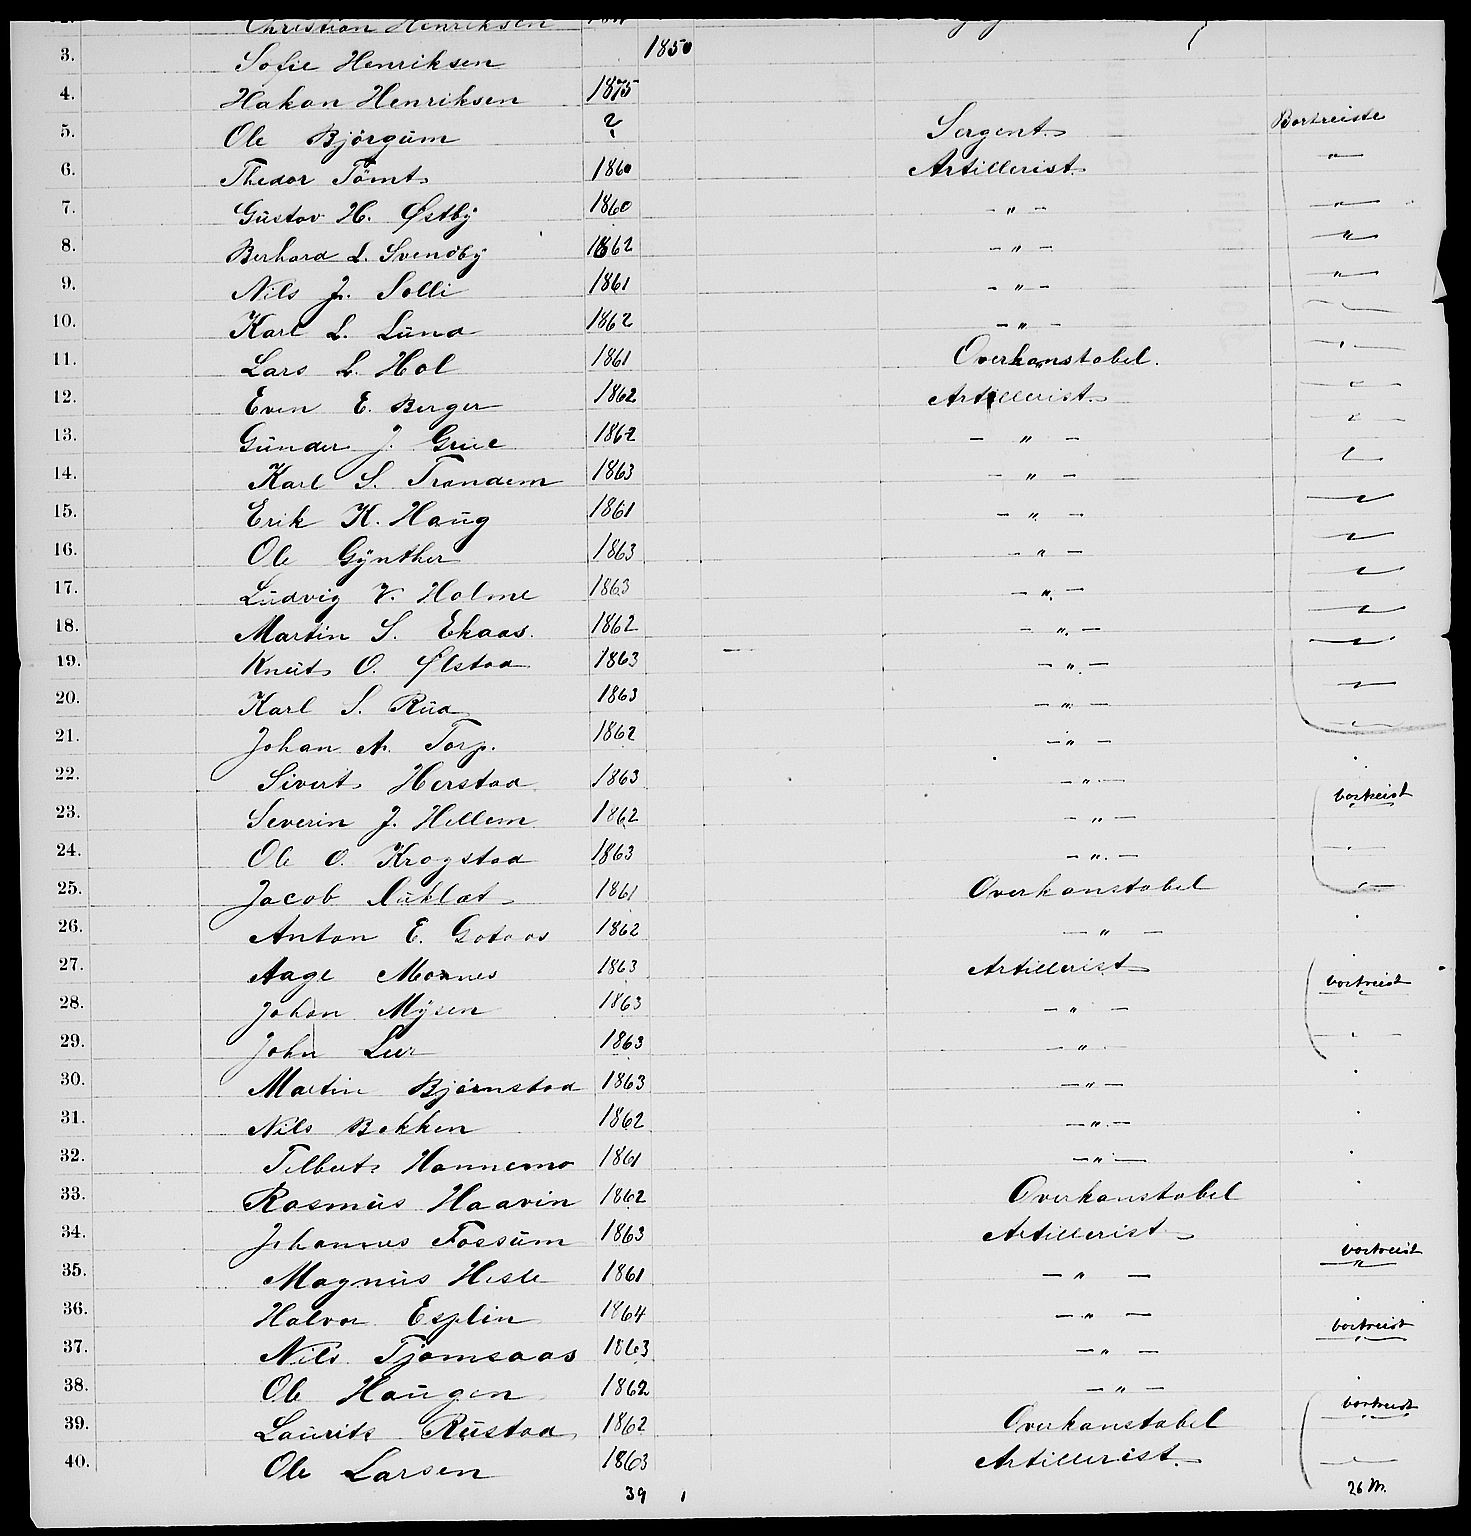 Christian Henriksen
3. Sofie Henriksen 1850
4. Hakon Henriksen 1875
5. Ole Bjørgum ? Sergent. Bortreiste
6. Thedor Tømt 1860 Artillerist. "
7. Gustav H. Østby 1860 - " - "
8. Berhard L. Svendby 1862 - " - "
9. Nils J. Solli 1861 - " - "
10. Karl L. Lund 1862 - " -
11. Lars L. Hol 1861 Overkonstabel.
12. Even E. Berger 1862 Artillerist.
13. Gunder J. Grue 1862 - " -
14. Karl S. Trondem 1863 - " -
15. Erik K. Haug 1861 - " -
16. Ole Gynther 1863 - " -
17. Ludvig V. Holme 1863 - " -
18. Martin S. Ekaas. 1862 - " -
19. Knut O. Ølstad 1863 - " -
20. Karl S. Rud 1863 - " -
21. Johan A. Torp. 1862 - " -
22. Sivert Herstad 1863 - " -
23. Severin J. Hellem 1862 - " - bortreist
24. Ole O. Krogstad 1863 - " -
25. Jacob 1861 Overkonstabel
26. Anton E. Gotaas 1862 - " -
27. Aage Moxnes 1863 Artillerist
28. Johan Mysen 1863 - " - bortreist
29. John Lier 1863 - " -
30. Martin Bjørnstad 1863 - " -
31. Nils Bekken 1862 - " -
32. Telbert Hannemo 1861 - " -
33. Rasmus Haavin 1862 Overkonstabel
34. Johannes Fossum 1863 Artillerist
35. Magnus Hesle 1861 - " - bortreist "
36. Halvor Esplin 1864 - " -
37. Nils Tjomsaas 1863 - " - bortreist
38. Ole Haugen 1862 - " -
39. Laurits Rustad 1862 Overkonstabel bortreist
40. Ole Larsen 1863 Artillerist.
39 1 26 M.